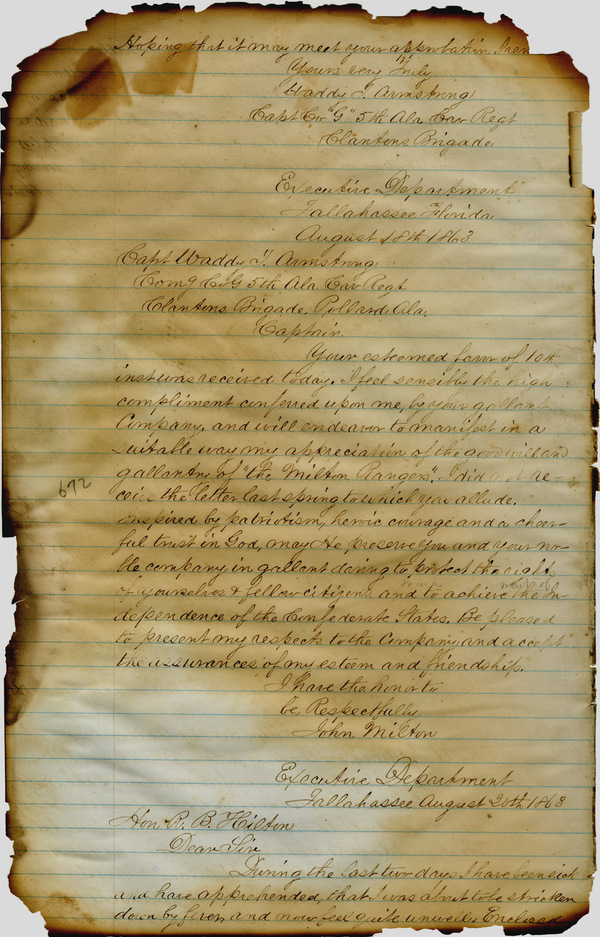 Hoping that it may meet your approbation I rem
Yours very Truly
Waddy T. Armstrong
Capt Co "G" 5th Ala Cav Regt
Clantons Brigade
Executive Department
Tallahassee Florida
August 18th 1863
Capt Waddy T. Armstrong
Comg Co G 5th Ala Cav Regt
Clantons Brigade. Pollard Ala.
Captain
Your esteemed favor of 10th
inst was received today. I feel sensibly the high
compliment conferred upon me, by your gallant
Company, and will endeavor to manifest in a
suitable way my appreciation of the goodwill and
gallantry of "the Milton Rangers". I did not re-
ceive the letter last spring to which you allude.
Inspired by patriotism, heroic courage and a cheer-
ful trust in God, may He preserve you and your no-
ble company in gallant daring to protect the rights
of yourselves & fellow citizens and to achieve the In-
dependence of the Confederate States. Be pleased
to present my respects to the Company and accept
the assurances of my esteem and friendship.
I have the honor to
be, Respectfully
John Milton
672
Executive Department
Tallahassee August 20th 1863
Hon. R. B. Hilton
Dear Sir
During the last two days I have been sick
and have apprehended, that I was about to be stricken
down by fever, and now feel quite unwell. Enclosed